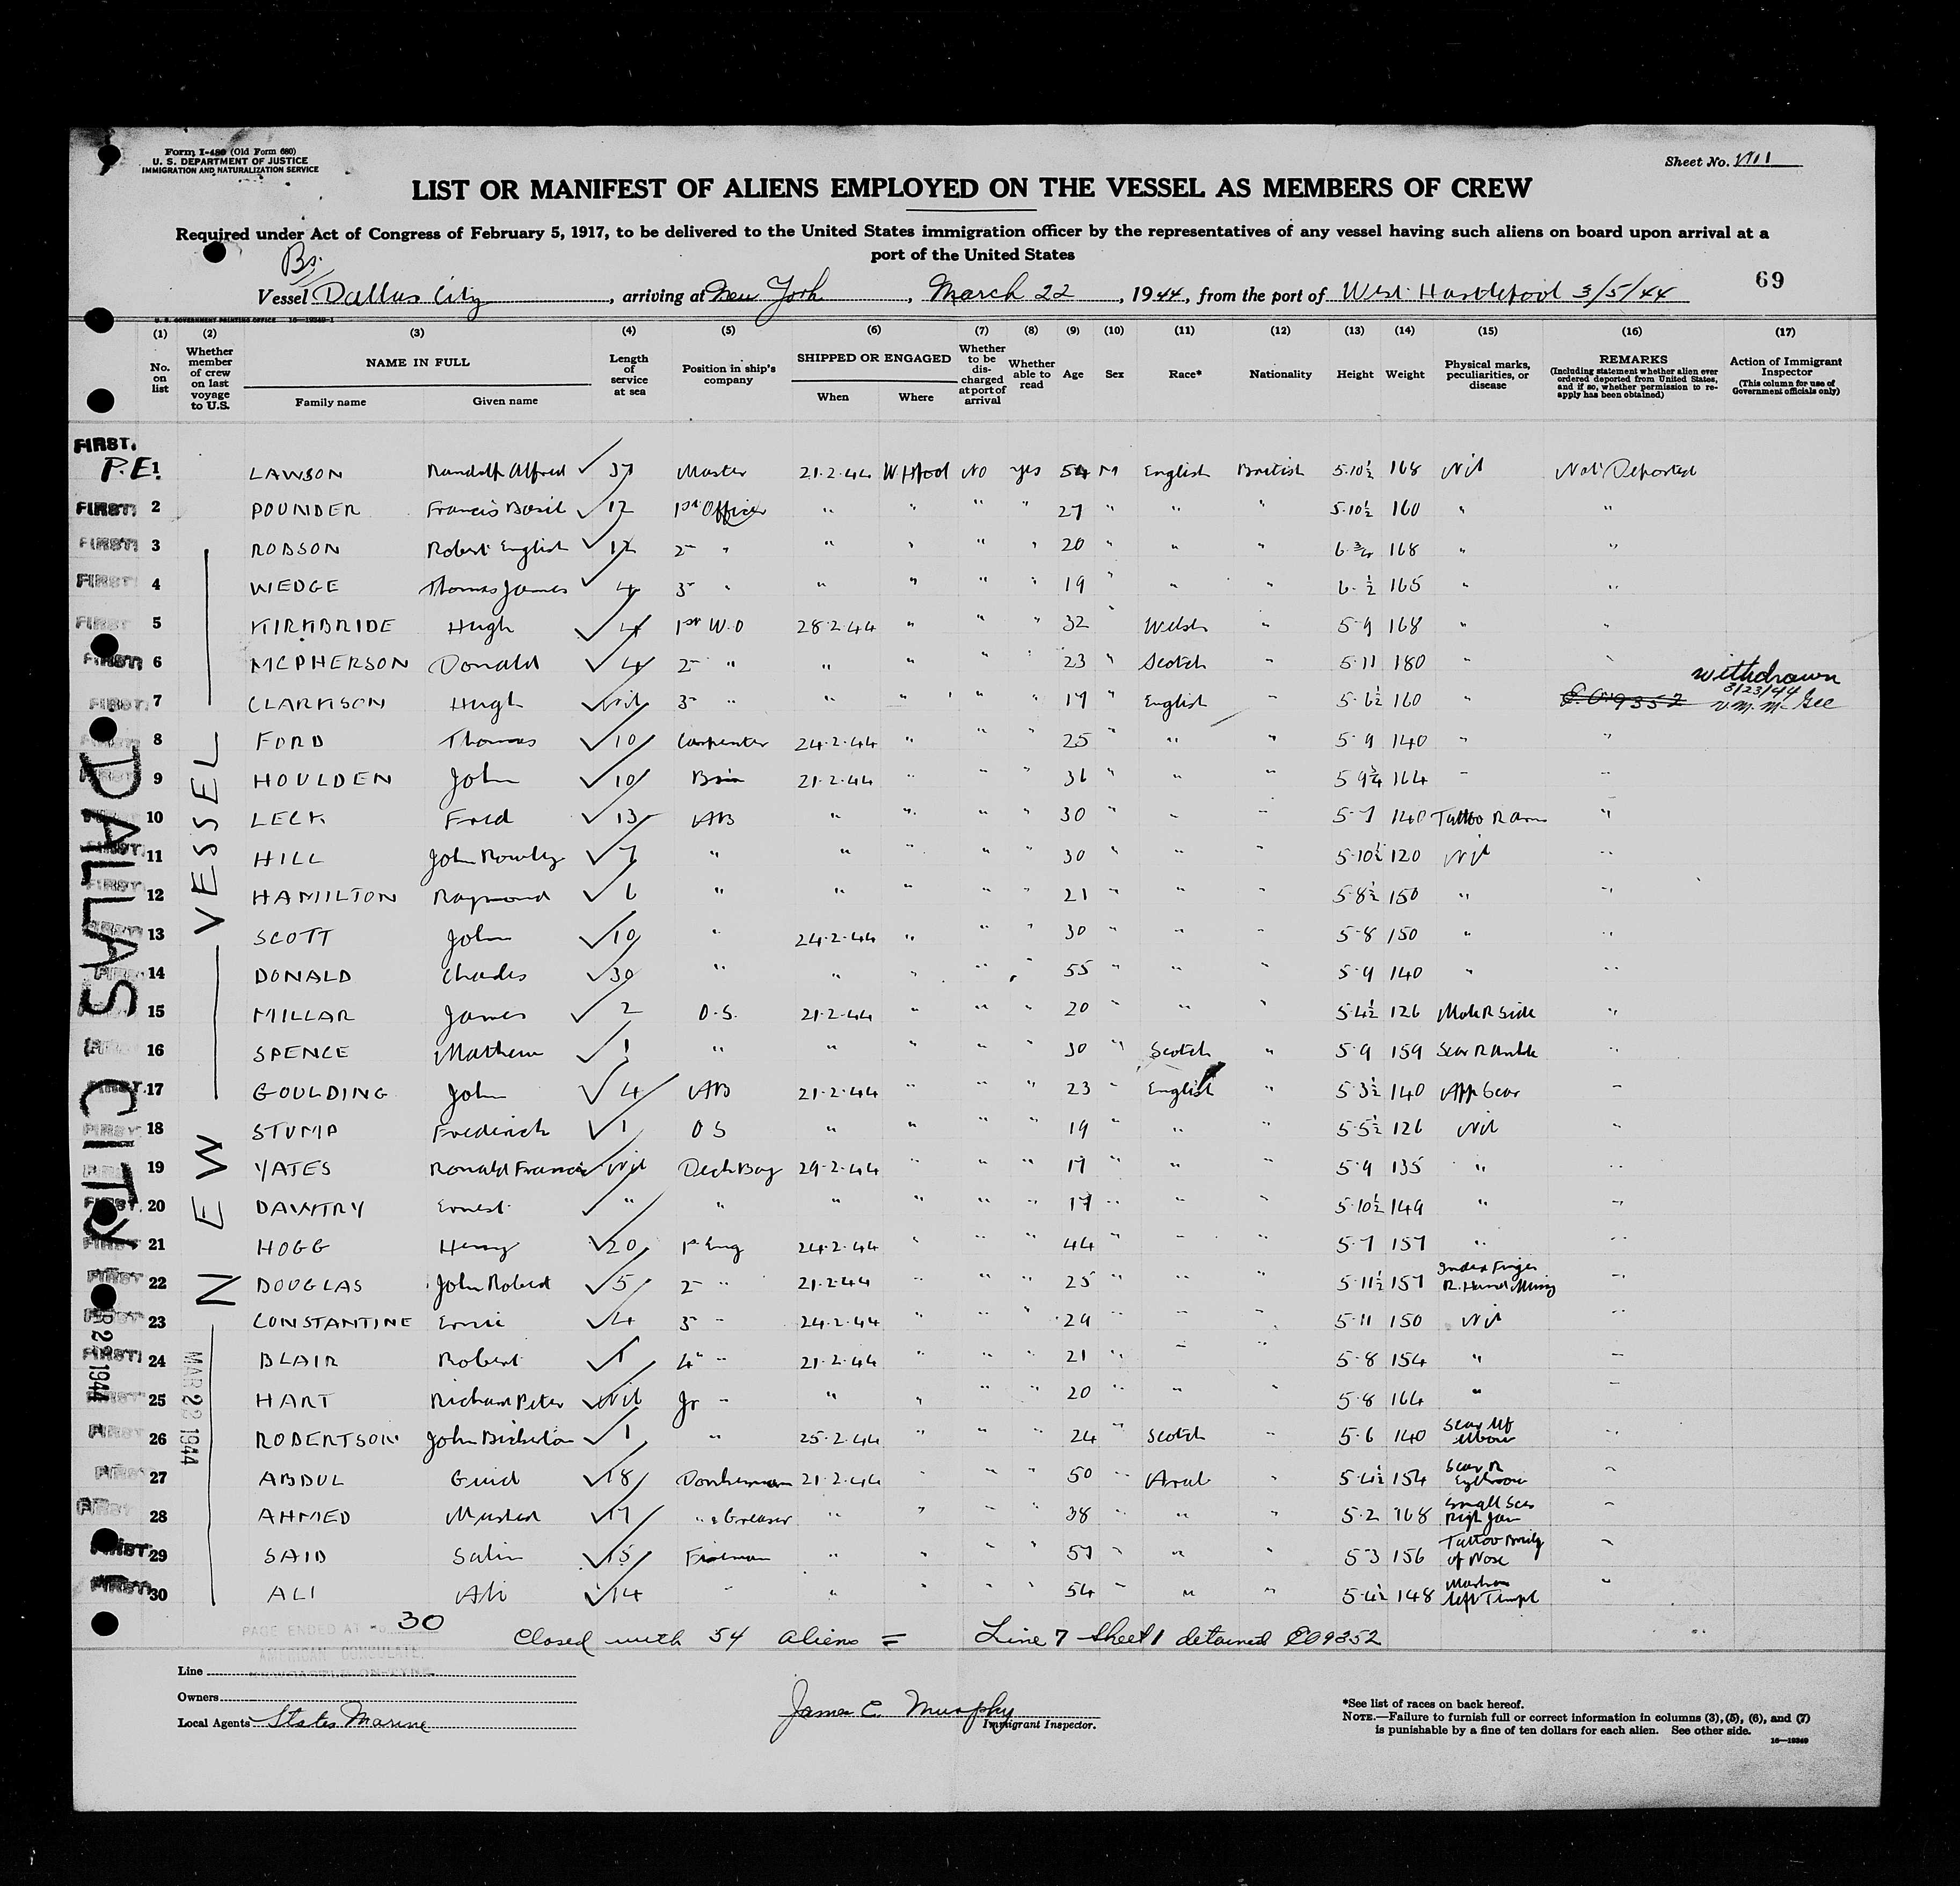 Form I-480 (Old Form 680)
U. S. DEPARTMENT OF JUSTICE
IMMIGRATION AND NATURALIZATION SERVICE
Sheet No.
LIST OR MANIFEST OF ALIENS EMPLOYED ON THE VESSEL AS MEMBERS OF CREW
Required under Act of Congress of February 5, 1917, to be delivered to the United States immigration officer by the representatives of any vessel having such aliens on board upon arrival at a
port of the United States
Br.
Vessel Dallas City, arriving at New York, March 22, 1944, from the port of West Hartlepool 3/5/44
69
U. S. GOVERNMENT PRINTING OFFICE 16—19349-1
(1) (2) (3) (4) (5) (6) (7) (8) (9) (10) (11) (12) (13) (14) (15) (16) (17)
No. on list
Whether member of crew on last voyage to U.S.
NAME IN FULL
Family name Given name
Length of service at sea
Position in ship's company
SHIPPED OR ENGAGED
When Where
Whether to be discharged at port of arrival
Whether able to read
Age Sex Race* Nationality Height Weight
Physical marks, peculiarities, or disease
REMARKS
(Including statement whether alien ever ordered deported from United States, and if so, whether permission to reapply has been obtained)
Action of Immigrant Inspector
(This column for use of Government officials only)
FIRST. P.E. 1 LAWSON Randolf Alfred 37 Master 21·2·44 W Hpool No yes 54 M English British 5·10½ 168 Nil Not Deported
FIRST 2 POUNDER Francis Basil 12 1st Officer " " " " 27 " " " 5·10½ 160 " "
FIRST 3 ROBSON Robert English 12 2 " " " " " 20 " " " 6·¾ 168 " "
FIRST 4 WEDGE Thomas James 4 3 " " " " " 19 " " " 6·½ 165 " "
FIRST 5 KIRKBRIDE Hugh 4 1st W.O 28·2·44 " " " 32 " Welsh " 5·9 168 " "
FIRST 6 MCPHERSON Donald 4 2 " " " " " 23 " Scotch " 5·11 180 " "
FIRST 7 CLARKSON Hugh Nil 3 " " " " " 17 " English " 5·6½ 160 " C.O. 9352 withdrawn 3/23/44 V.M.M. Gee
FIRST 8 FORD Thomas 10 Carpenter 24·2·44 " " " 25 " " " 5·9 140 " "
FIRST 9 HOULDEN John 10 Bsin 21·2·44 " " " 36 " " " 5·9¾ 164 " "
FIRST 10 LECK Fred 13 AB " " " " 30 " " " 5·7 140 Tattoo R arm "
FIRST 11 HILL John Rowley 7 " " " " " 30 " " " 5·10½ 120 Nil "
FIRST 12 HAMILTON Raymond 6 " " " " " 21 " " " 5·8½ 150 " "
FIRST 13 SCOTT John 10 " 24·2·44 " " " 30 " " " 5·8 150 " "
FIRST 14 DONALD Charles 30 " " " " " 55 " " " 5·9 140 " "
15 MILLAR James 2 O.S. 21·2·44 " " " 20 " " " 5·4½ 126 Mole R Side "
16 SPENCE Mathew 1 " " " " " 30 " Scotch " 5·9 159 Scar R Ankle "
FIRST 17 GOULDING John 4 AB 21·2·44 " " " 23 " English " 5·3½ 140 App Scar "
FIRST 18 STUMP Frederick 1 OS " " " " 19 " " " 5·5½ 126 Nil "
FIRST 19 YATES Ronald Francis Nil Deck Boy 29·2·44 " " " 17 " " " 5·9 135 " "
FIRST 20 DAWTRY Ernest " " " " " " 17 " " " 5·10½ 149 " "
FIRST 21 HOGG Henry 20 1st Eng 24·2·44 " " " 44 " " " 5·7 157 " "
FIRST 22 DOUGLAS John Robert 5 2 " 21·2·44 " " " 25 " " " 5·11½ 157 Index Finger R. Hand Missing "
FIRST 23 CONSTANTINE Ernie 4 3 " 24·2·44 " " " 29 " " " 5·11 150 Nil "
FIRST 24 BLAIR Robert 1 4 " 21·2·44 " " " 21 " " " 5·8 154 " "
FIRST 25 HART Richard Peter Nil Jr " " " " " 20 " " " 5·8 164 "
FIRST 26 ROBERTSON John Bickerton 1 " 25·2·44 " " " 24 " Scotch " 5·6 140 Scar Lft elbow "
FIRST 27 ABDUL Guid 18 Donkeyman 21·2·44 " " " 50 " Arab " 5·4½ 154 Scar R Eyebrow "
FIRST 28 AHMED 17 " & Greaser " " " " 38 " " " 5·2 168 Small Scar Right Jaw "
FIRST 29 SAID Salim 15 Fireman " " " " 57 " " " 5·3 156 Tattoo Bridg of Nose "
FIRST 30 ALI Ali 14 " " " " " 54 " " " 5·4½ 148 left Templ "
DALLAS CITY
MAR 22 1944
NEW VESSEL
MAR 22 1944
PAGE ENDED AT No. 30
AMERICAN CONSULATE,
NEWCASTLE-ON-TYNE
Closed with 54 aliens = Line 7 Sheet 1 detained CO9352
Line
Owners
Local Agents States Marine
James C. Murphy
Immigrant Inspector.
*See list of races on back hereof.
NOTE.—Failure to furnish full or correct information in columns (3), (5), (6), and (7)
is punishable by a fine of ten dollars for each alien. See other side.
16—19349